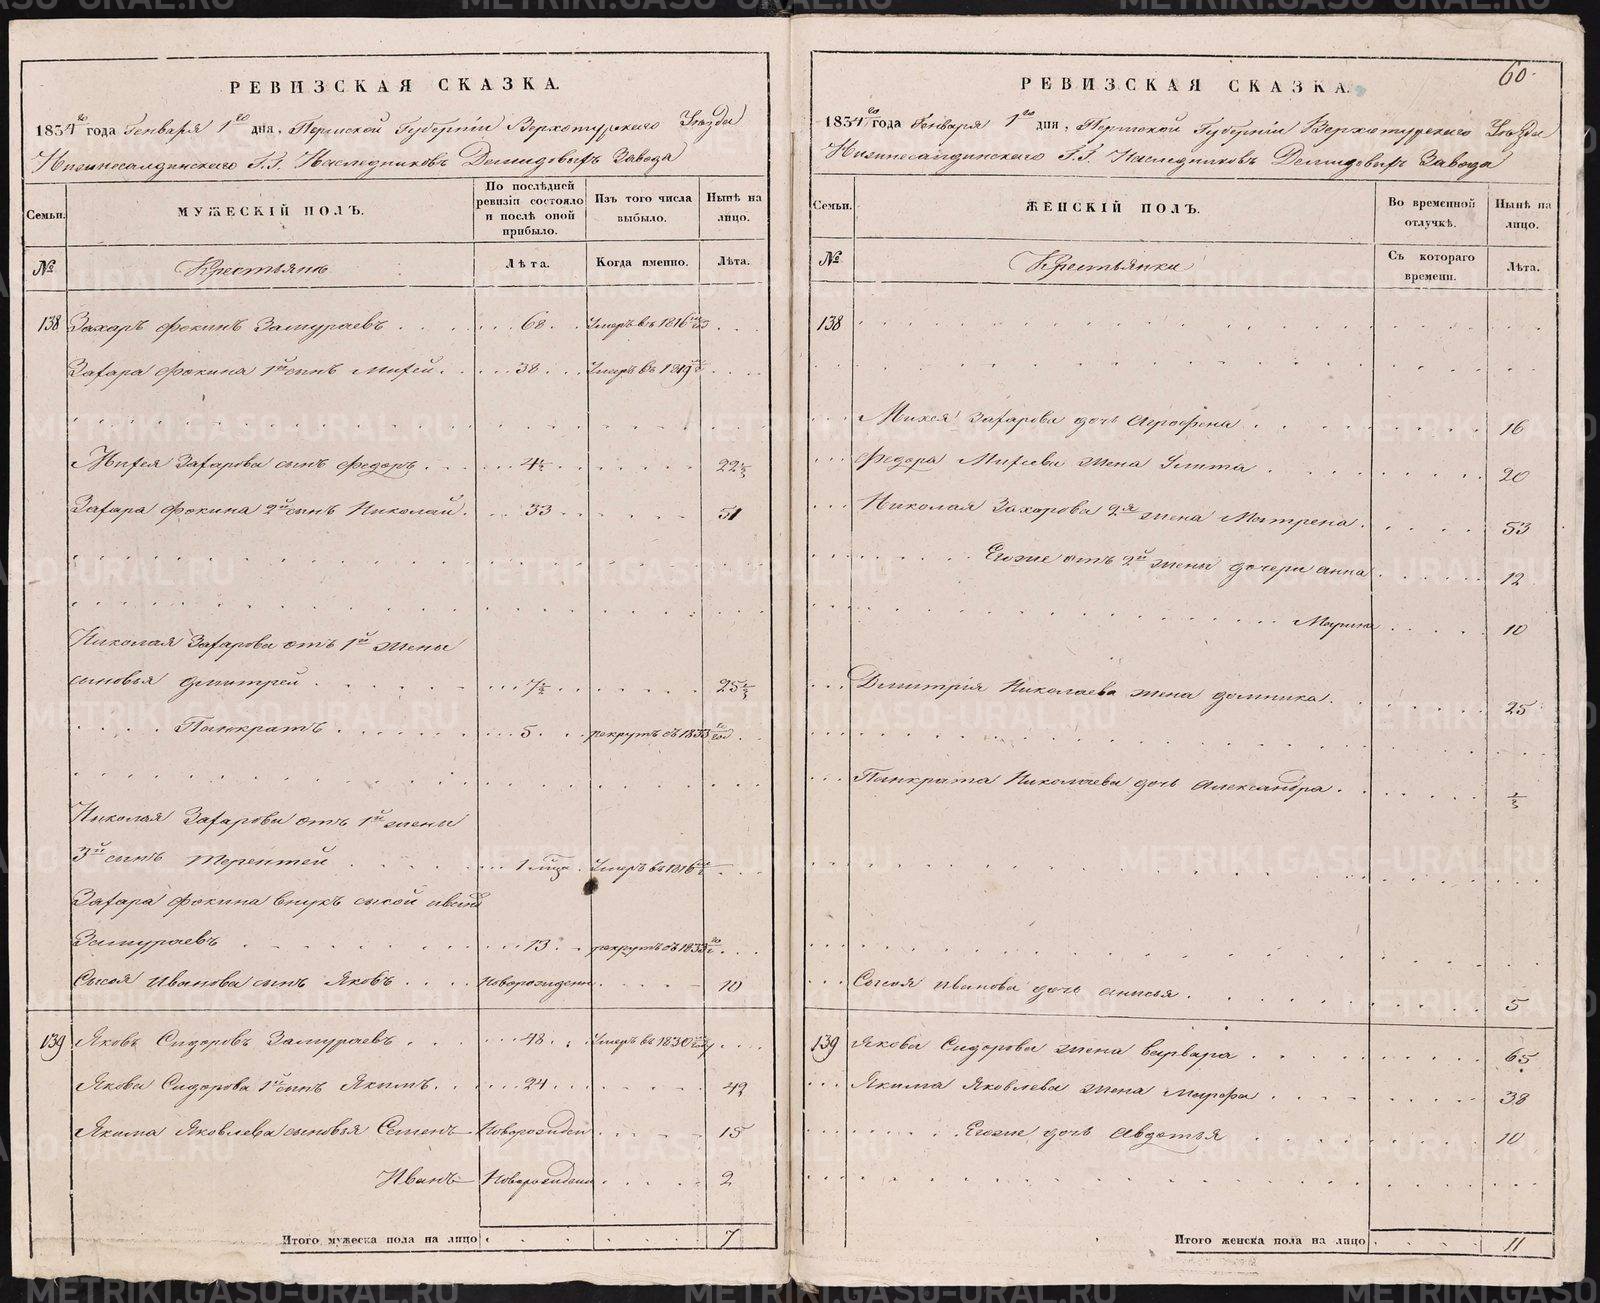 РЕВИЗСКАЯ СКАЗКА.
1834го года Генваря 1го дня, Пермской Губерніи Верхотурскаго Уѣзда
Нижнесалдинскаго Г.Г. Наслѣдниковъ Демидовыхъ Завода
Семьи.
МУЖЕСКІЙ ПОЛЪ.
По послѣдней ревизіи состояло и послѣ оной прибыло.
Изъ того числа выбыло.
Нынѣ на лицо.
№
Крестьянъ
Лѣта.
Когда именно.
Лѣта.
138 Захаръ Фокинъ Замураевъ 68 Умеръ въ 1816
Захара Фокина 1й сынъ Михей 38 Умеръ въ 1819
Михея Захарова сынъ Федоръ 4½ 22½
Захара Фокина 2й сынъ Николай 33 51
Николая Захарова отъ 1й жены
сыновья Дмитрей 7½ 25½
Панкратъ 5 рекрутъ съ 1833
Николая Захарова отъ 1й жены
3й сынъ Терентей 1 мѣся. Умеръ въ 1816
Захара Фокина внукъ Сысой Иванъ
Замураевъ 13 рекрутъ съ 1833
Сысоя Иванова сынъ Яковъ Новорожденн 10
139 Яковъ Сидоровъ Замураевъ 48 Умеръ въ 1830
Якова Сидорова 1й сынъ Якимъ 24 42
Якима Яковлева сыновья Семенъ Новорожден 15
Иванъ Новорожденн 2
Итого мужеска пола на лицо 7
60.
РЕВИЗСКАЯ СКАЗКА.
1834го года Генваря 1го дня, Пермской Губерніи Верхотурскаго Уѣзда
Нижнесалдинскаго Г.Г. Наслѣдниковъ Демидовыхъ Завода
Семьи.
ЖЕНСКІЙ ПОЛЪ.
Во временной отлучкѣ.
Нынѣ на лицо.
№
Крестьянки
Съ котораго времени.
Лѣта.
138
Михея Захарова дочь Агрофена 16
Федора Михеева жена Улита 20
Николая Захарова 2я жена Матрена 53
Егоже отъ 2й жены дочери Анна 12
Марина 10
Дмитрія Николаева жена Домника 25
Панкрата Николаева дочь Александра ½
Сысоя Иванова дочь Анисья 5
139 Якова Сидорова жена Варвара 65
Якима Яковлева жена Марфа 38
Егоже дочь Авдотья 10
Итого женска пола на лицо 11
METRIKI.GASO-URAL.RU